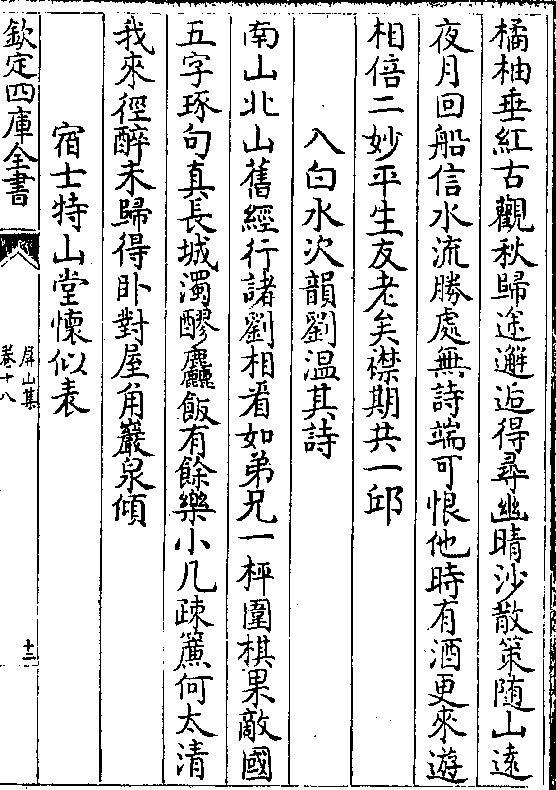 橘柚垂紅古觀秋歸途邂逅得尋幽晴沙散策随山逺
夜月回船信水流勝處無詩端可恨他時有酒更來遊
相倍二妙平生友老矣襟期共一邱
入白水次韻劉温其詩
南山北山舊經行諸劉相看如弟兄一枰圍棋果敵國
五字琢句真長城濁醪麤飯有餘樂小几疎簾何太清
我來徑醉未歸得卧對屋角巖泉傾
宿士特山堂懷似表
欽定四庫全書
屏山集
卷十八
十三